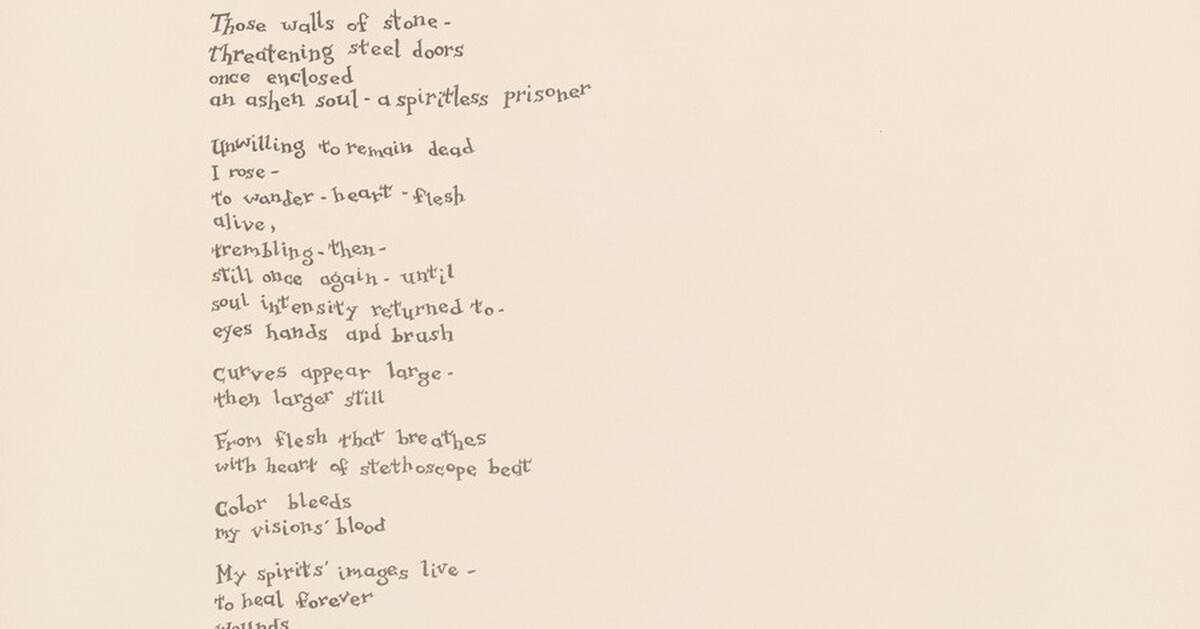 Those walls of stone -
threatening steel doors
once enclosed
an ashen soul - a spiritless prisoner
Unwilling to remain dead
I rose -
to wander - heart - flesh
alive,
trembling - then -
still once again - until
soul intensity returned to -
eyes hands and brush
Curves appear large -
then larger still
From flesh that breathes
with heart of stethoscope beat
Color bleeds
my visions' blood
My spirits' images live -
to heal forever
wounds